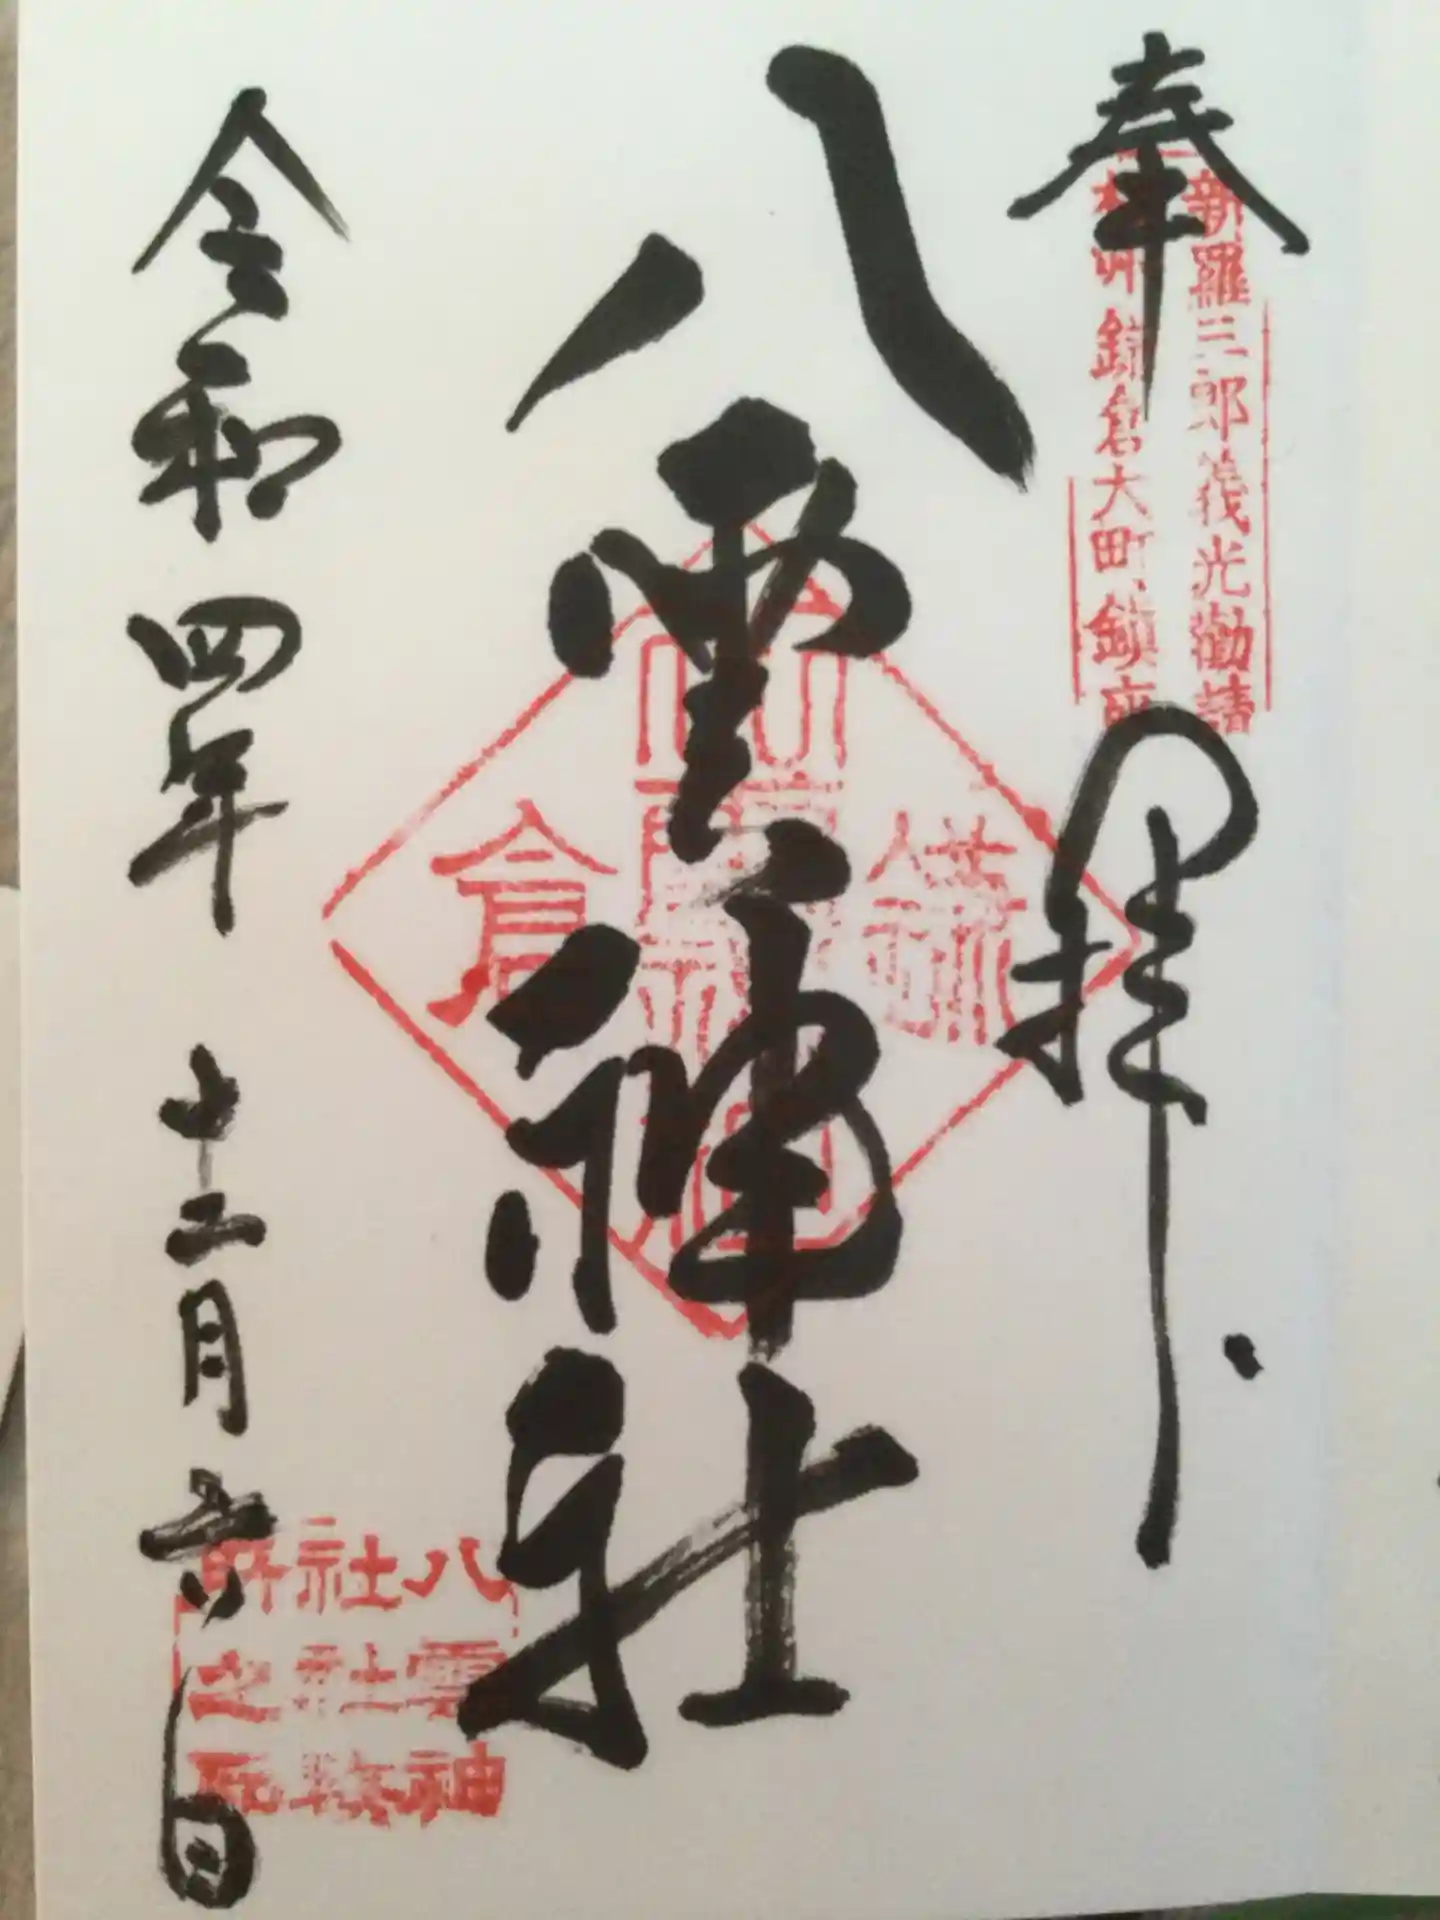 奉拝
新羅三郎義光勧請
相州鎌倉大町鎮座
八雲神社
鎌倉
令和四年 十二月六日
八雲神
社社務
所之印